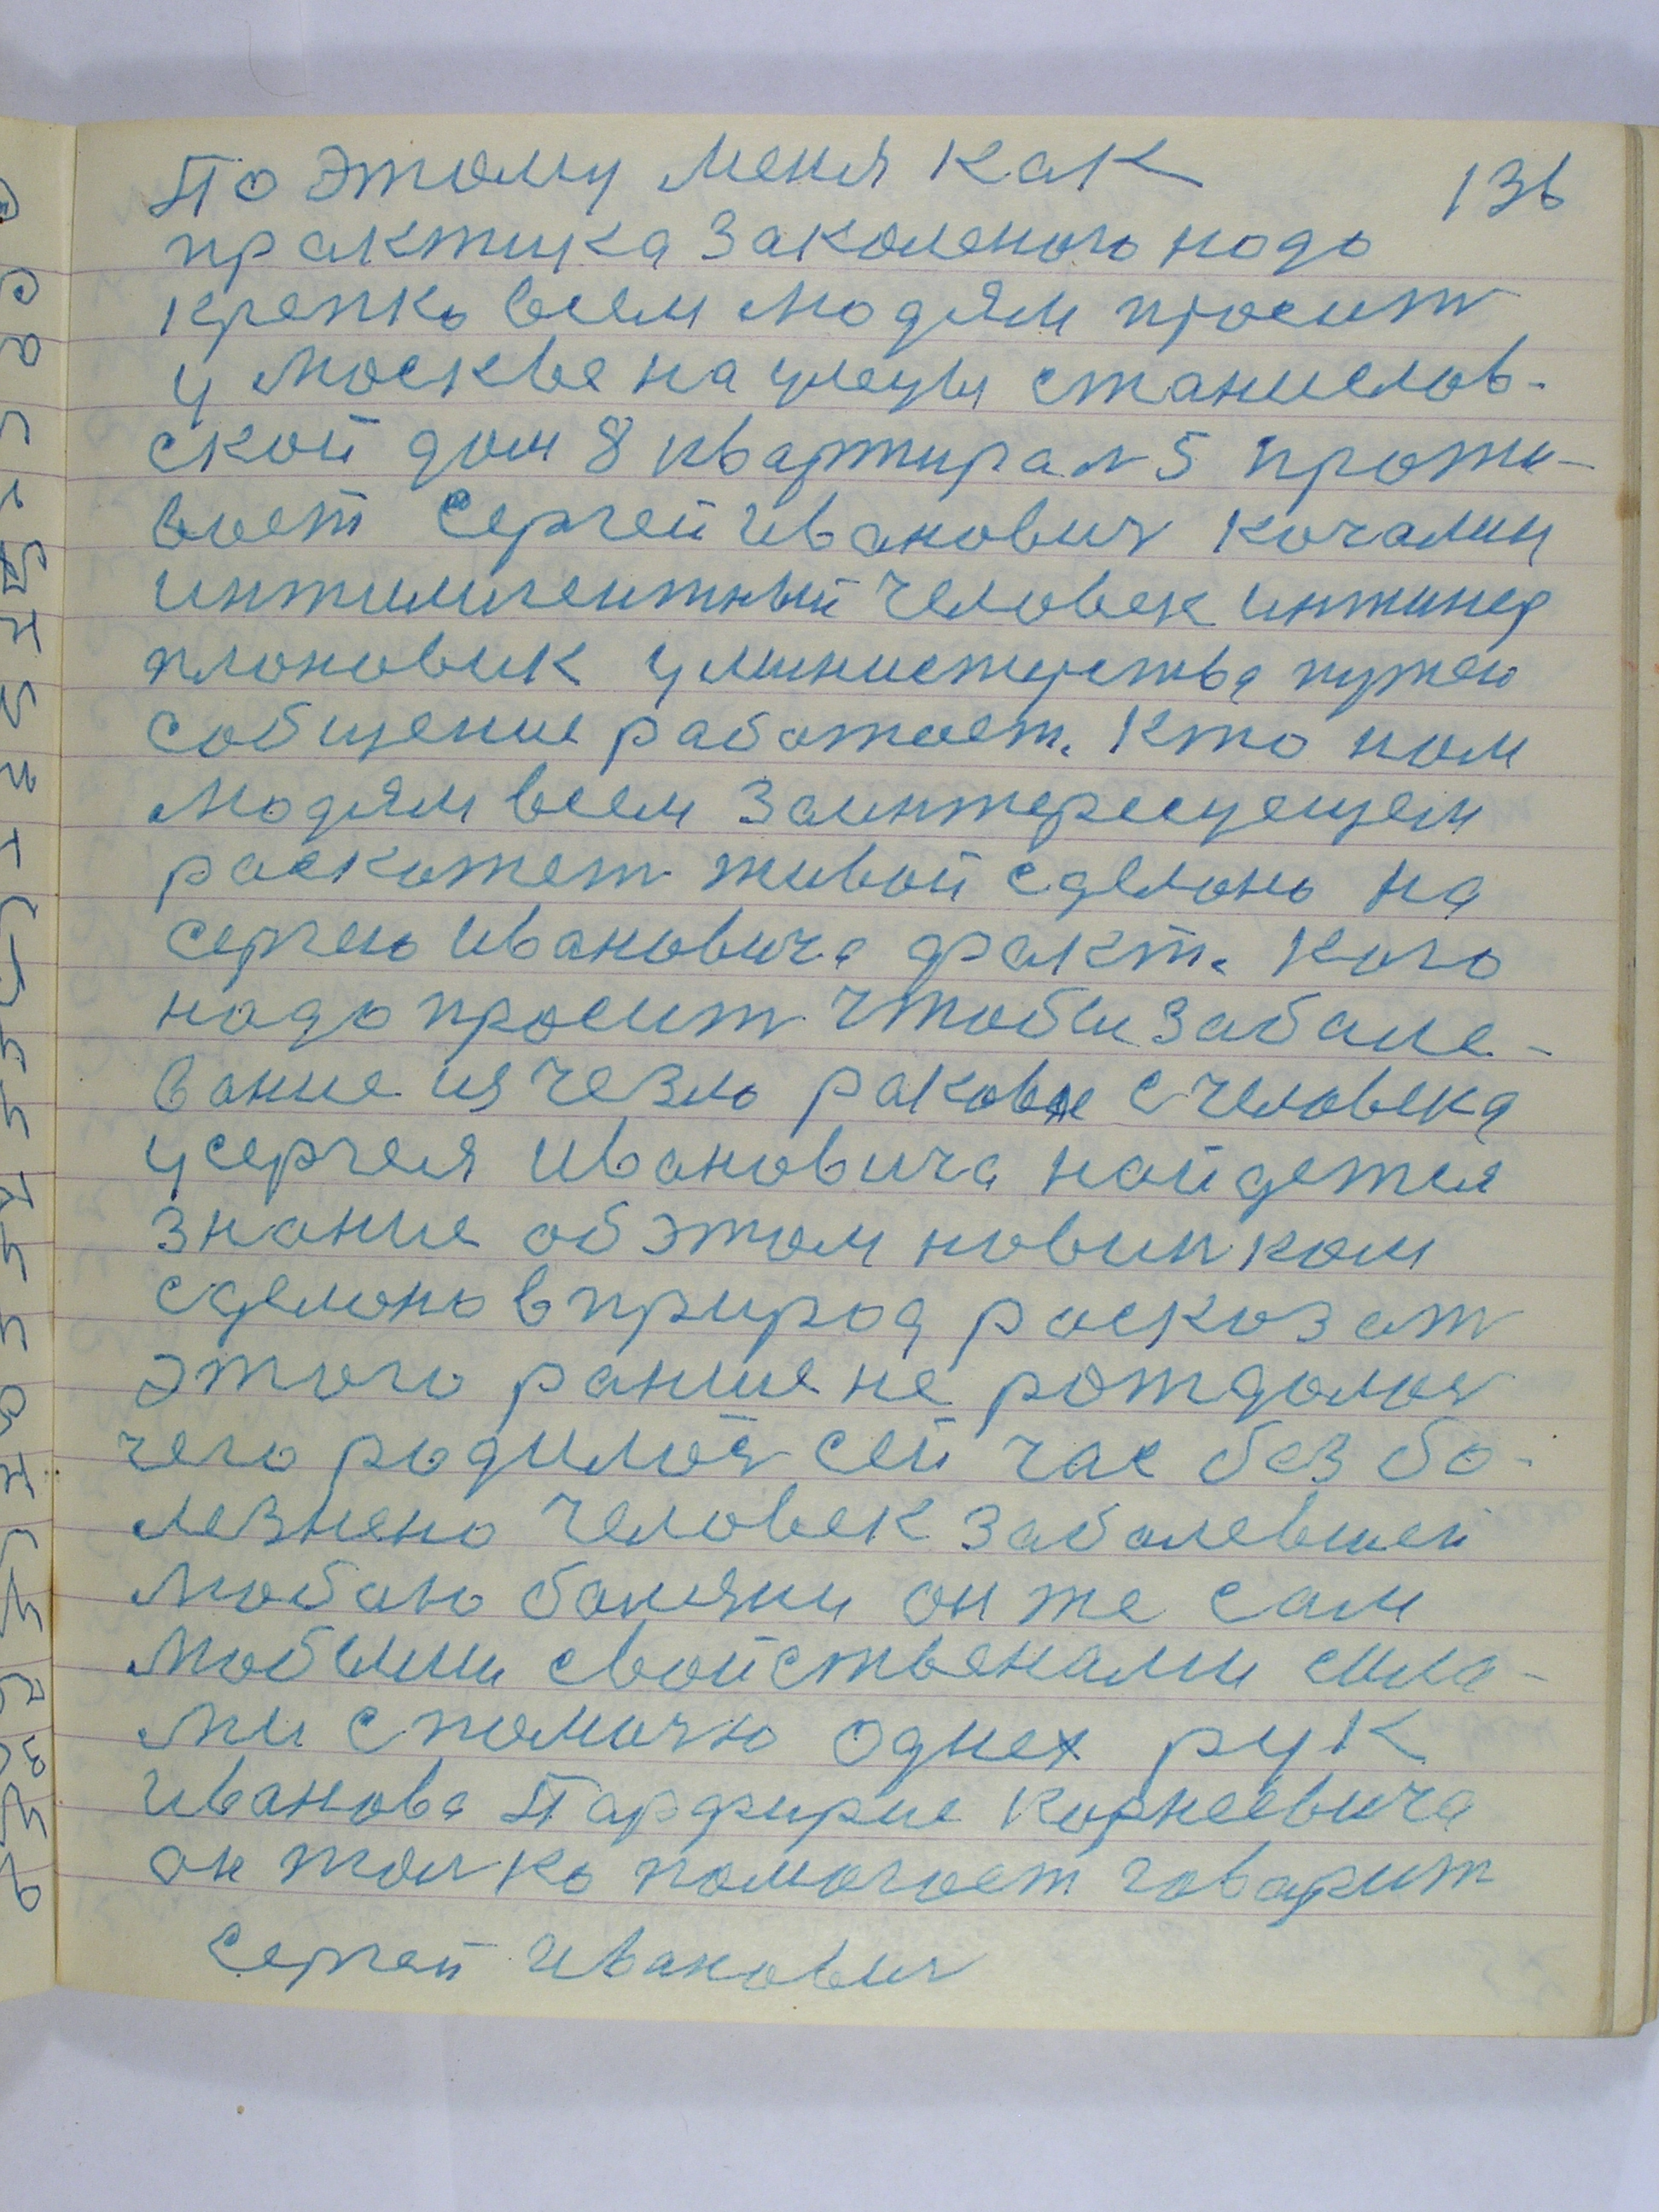 136
По этому меня как
практика закаленого надо
крепко всем людям просит
у москве на улецы станислов-
ской дом 8 квартира № 5 прожи-
воет Сергей Иванович Качалин
интилигентный человек инжинер
плоновик у министерства путею
собщение работает. Кто ном
людям всем заинтересуещем
раскожет живой сделоно на
сергею Ивановича факт. Кого
надо просит чтобы забале-
вание изчезло раковое с человека
у сергея Ивановича найдется
знание об этом новинком
сделоно в природ расказат
этого раньше не рождолос
чего родилос сей час без бо-
лезнено человек заболевшей
любою болезни он же сам
любыми свойственами сила-
ми с помочю однех рук
Иванова Парфирие Корнеевича
он толко помогает говарит
Сергей Иванович